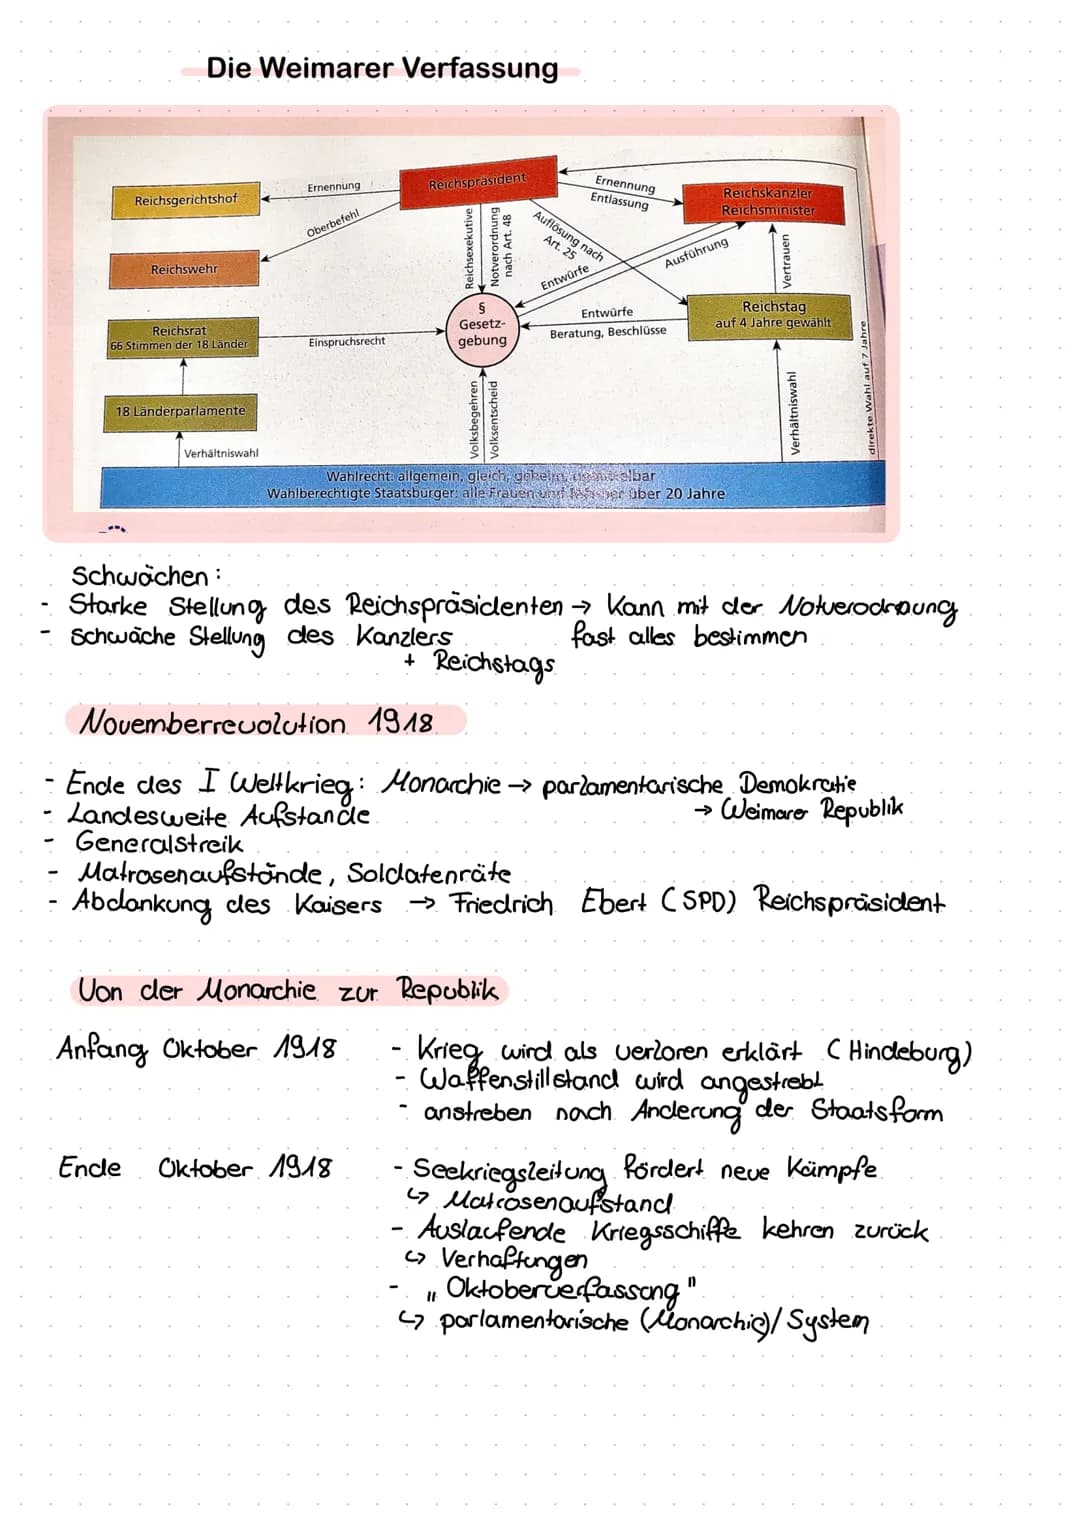 Die Weimarer Verfassung
Reichsgerichtshof
Ernennung
Reichspräsident
Ernennung
Entlassung
Reichskanzler
Reichsminister
Oberbefehl
Reichswehr
Reichsexekutive
Notverordnung
nach Art. 48
Auflösung nach
Art. 25
Entwürfe
Ausführung
Vertrauen
Reichsrat
66 Stimmen der 18 Länder
Einspruchsrecht
§
Gesetz-
gebung
Entwürfe
Beratung, Beschlüsse
Reichstag
auf 4 Jahre gewählt
18 Länderparlamente
Verhältniswahl
Volksbegehren
Volksentscheid
Verhältniswahl
direkte Wahl auf 7 Jahre
Wahlrecht: allgemein, gleich, geheim,
Wahlberechtigte Staatsbürger: alle Frauen und über 20 Jahre
Schwächen:
- Starke Stellung des Reichspräsidenten → Kann mit der Notverodnung
- Schwäche Stellung des Kanzlers fast alles bestimmen
+ Reichstags
Novemberrevolution 1918
- Ende des I Weltkrieg: Monarchie → parlamentarische Demokratie
- Landesweite Aufstände → Weimarer Republik
- Generalstreik
- Matrosenaufstände, Soldatenräte
- Abdankung des Kaisers → Friedrich Ebert (SPD) Reichspräsident
Von der Monarchie zur Republik
Anfang Oktober 1918 - Krieg wird als verloren erklärt (Hindeburg)
- Waffenstillstand wird angestrebt
- anstreben nach Änderung der Staatsform
Ende Oktober 1918 - Seekriegsleitung fördert neue Kämpfe
↳ Matrosenaufstand
- Auslaufende Kriegsschiffe kehren zurück
↳ Verhaftungen
- „Oktoberverfassung"
↳ parlamentarische (Monarchie)/System